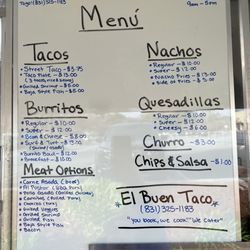 To go! (831) 325-1183
9am - 5pm
Menú
Tacos
• Street Taco - $3.75
• Taco Plate - $15.00
(3 tacos, rice & beans)
• Grilled Shrimp - $5.00
• Baja Style Fish - $5.00
Burritos
• Regular - $10.00
• Super - $12.00
• Bean & Cheese - $8.00
• Surf & Turf - $13.00
• Burrito Bowl - $12.00
• Breakfast - $10.00
Meat Options
• Carne Asada (Beef)
• Al Pastor (BBQ Pork)
• Pollo Asado (Grilled Chicken)
• Carnitas (Fried Pork)
• Chorizo
• Grilled Shrimp
• Grilled Fish
• Baja Style Fish
• Bacon
Nachos
• Regular - $10.00
• Super - $12.00
• Nacho Fries - $13.00
• Side of Fries - $5.00
Quesadillas
• Regular - $10.00
• Super - $12.00
• Cheesy - $6.00
Churro - $3.00
Chips & Salsa - $1.00
El Buen Taco
(831) 325-1183
"You book, we cook" "We Cater"